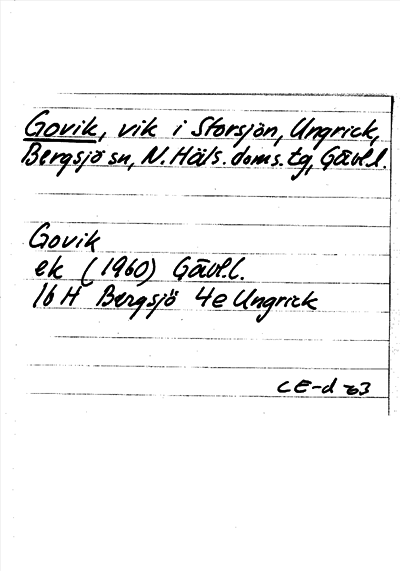 Govik, vik i Storsjön, Ungrick,
Bergsjö sn, N. Häls. doms. tg, Gävl.l.
Govik
ek (1960) Gävl.l.
16 H Bergsjö 4e Ungrick
CE-d 63